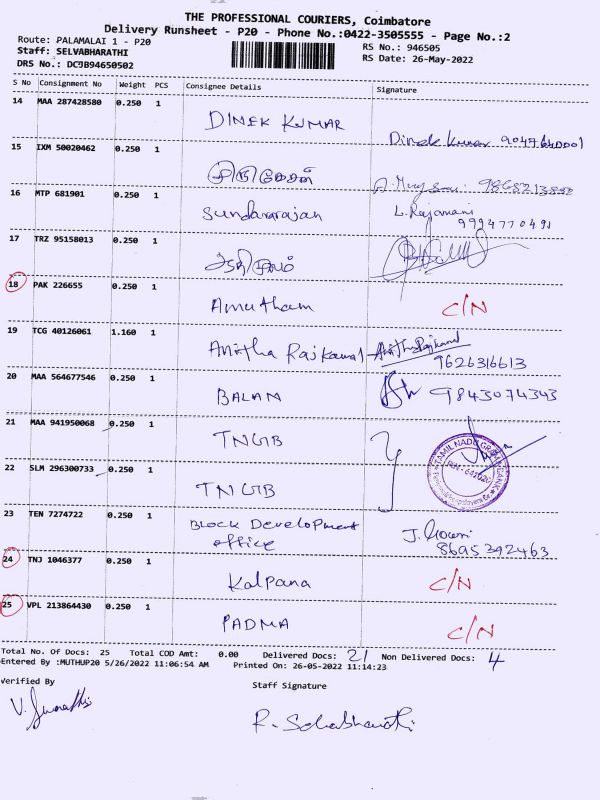 THE PROFESSIONAL COURIERS, Coimbatore
Delivery Runsheet - P20 - Phone No.:0422-3505555 - Page No.:2
Route: PALAMALAI 1 - P20
RS No.: 946505
Staff: SELVABHARATHI
RS Date: 26-May-2022
DRS No.: DC9B94650502
S No Consignment No Weight PCS Consignee Details Signature
14 MAA 287428580 0.250 1
DINEK KUMAR
Dinek Kumar
15 IXM 50020462 0.250 1
16 MTP 681901 0.250 1
Sundararajan
L. Rajamani
9994770491
17 TRZ 95158013 0.250 1
18 PAK 226655 0.250 1
Amutham C/N
19 TCG 40126061 1.160 1
Anitha Rajkamal
9626316613
20 MAA 564677546 0.250 1
BALAN 9843074343
21 MAA 941950068 0.250 1
TNGB
TAMIL NADU GRAMA BANK
PIN - 641020
22 SLM 296300733 0.250 1
TNGB
23 TEN 7274722 0.250 1
Block Development
office
J. Gowri
8695392463
24 TNJ 1046377 0.250 1
Kalpana C/N
25 VPL 213864430 0.250 1
PADMA C/N
Total No. Of Docs: 25 Total COD Amt: 0.00 Delivered Docs: 21 Non Delivered Docs: 4
Entered By :MUTHUP20 5/26/2022 11:06:54 AM Printed On: 26-05-2022 11:14:23
Verified By
Staff Signature